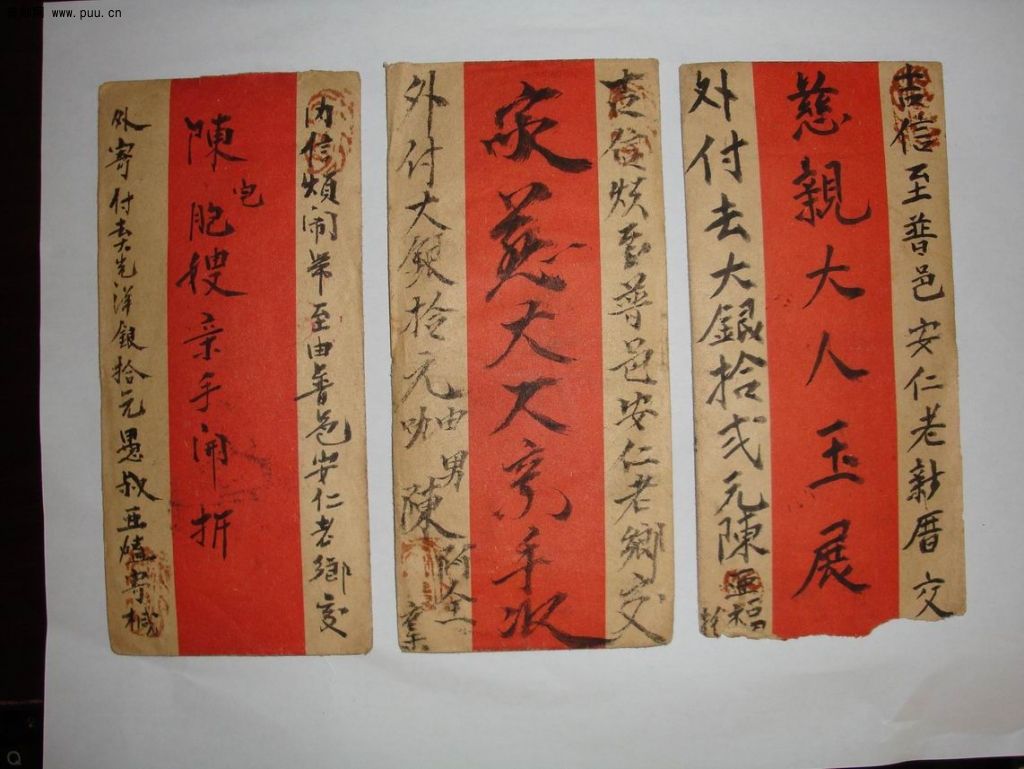 www.puu.cn
吉信至普邑安仁老新厝交
慈親大人玉展
外付去大銀拾弍元陳亜福
吉信煩至普邑安仁老鄉交
慈大人親手收
外付大銀拾元
男陳
内信煩 帶至 普邑安仁老鄉交
陳 胞嫂亲手開折
外寄付去 洋銀拾元愚叔亜 寄